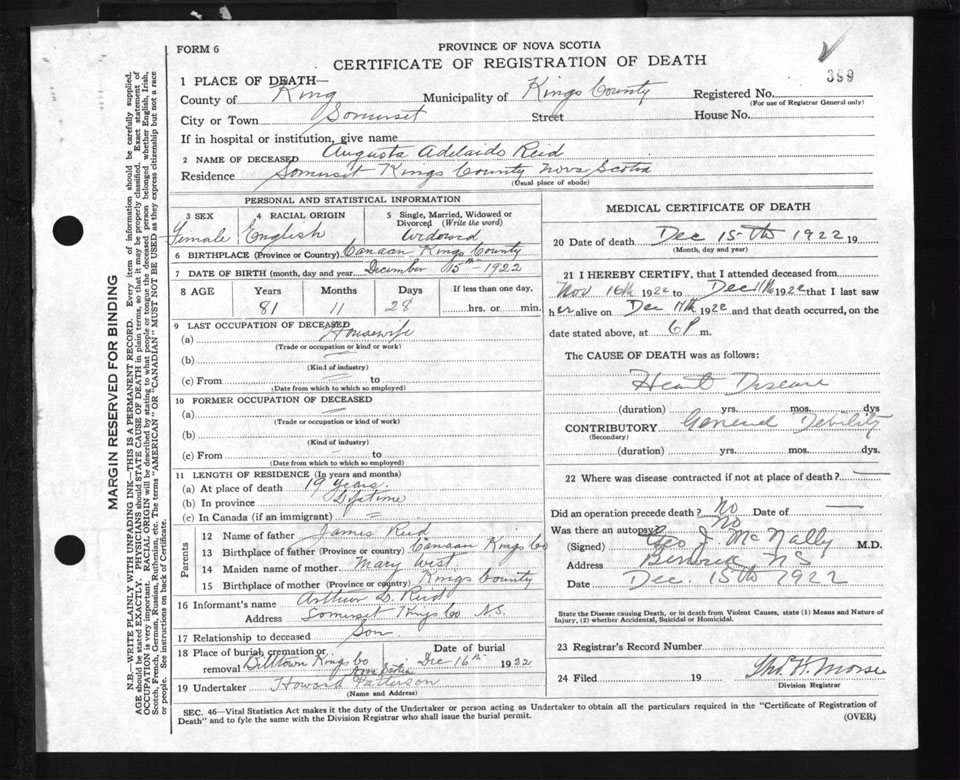 FORM 6
PROVINCE OF NOVA SCOTIA
CERTIFICATE OF REGISTRATION OF DEATH
399
1 PLACE OF DEATH—
County of King Municipality of Kings County Registered No.
(For use of Registrar General only)
City or Town Somerset Street House No.
If in hospital or institution, give name
2 NAME OF DECEASED Augusta Adelaide Reid
Residence Somerset Kings County Nova Scotia
(Usual place of abode)
PERSONAL AND STATISTICAL INFORMATION
3 SEX 4 RACIAL ORIGIN 5 Single, Married, Widowed or Divorced (Write the word)
Female English Widowed
6 BIRTHPLACE (Province or Country) Canaan Kings County
7 DATE OF BIRTH (month, day and year) December 15th 1922
8 AGE Years Months Days If less than one day,
81 11 28 hrs. or min.
9 LAST OCCUPATION OF DECEASED
(a) Housewife
(Trade or occupation or kind or work)
(b)
(Kind of industry)
(c) From to
(Date from which to which so employed)
10 FORMER OCCUPATION OF DECEASED
(a)
(Trade or occupation or kind of work)
(b)
(Kind of industry)
(c) From to
(Date from which to which so employed)
11 LENGTH OF RESIDENCE (In years and months)
(a) At place of death 19 years.
(b) In province Lifetime
(c) In Canada (if an immigrant)
Parents
12 Name of father James Reid
13 Birthplace of father (Province or country) Canaan Kings Co
14 Maiden name of mother Mary West
15 Birthplace of mother (Province or country) Kings County
16 Informant's name Arthur D. Reid
Address Somerset Kings Co N.S.
17 Relationship to deceased Son
18 Place of burial, cremation or removal Billtown Kings Co Nova Scotia Date of burial Dec 16th 1922
19 Undertaker Howard Patterson
(Name and Address)
MEDICAL CERTIFICATE OF DEATH
20 Date of death Dec 15th 1922 19
(Month, day and year)
21 I HEREBY CERTIFY, that I attended deceased from
Nov 16th 1922 to Dec 11th 1922 that I last saw
her alive on Dec 11th 1922 and that death occurred, on the
date stated above, at 6 P m.
The CAUSE OF DEATH was as follows:
Heart Disease
(duration) yrs. mos. dys
CONTRIBUTORY General Debility
(Secondary)
(duration) yrs. mos. dys
22 Where was disease contracted if not at place of death?
Did an operation precede death? No Date of
Was there an autopsy? No
(Signed) Geo J. McNally M.D.
Address Berwick NS
Date Dec. 15th 1922
State the Disease causing Death, or in death from Violent Causes, state (1) Means and Nature of
Injury, (2) whether Accidental, Suicidal or Homicidal.
23 Registrar's Record Number
24 Filed 19 Thos. H. Morse
Division Registrar
SEC. 46—Vital Statistics Act makes it the duty of the Undertaker or person acting as Undertaker to obtain all the particulars required in the "Certificate of Registration of
Death" and to fyle the same with the Division Registrar who shall issue the burial permit.
(OVER)
MARGIN RESERVED FOR BINDING
N.B.—WRITE PLAINLY WITH UNFADING INK—THIS IS A PERMANENT RECORD. Every item of information should be carefully supplied.
AGE should be stated EXACTLY. PHYSICIANS should STATE CAUSE OF DEATH in plain terms, so that it may be properly classified. Exact statement of
OCCUPATION is very important. RACIAL ORIGIN will be described by stating to what people or tongue the deceased person belonged whether English, Irish,
Scotch, French, German, Russian, Ruthenian, etc. The terms "AMERICAN" OR "CANADIAN" MUST NOT BE USED as they express citizenship but not a race
or people. See instructions on back of Certificate.